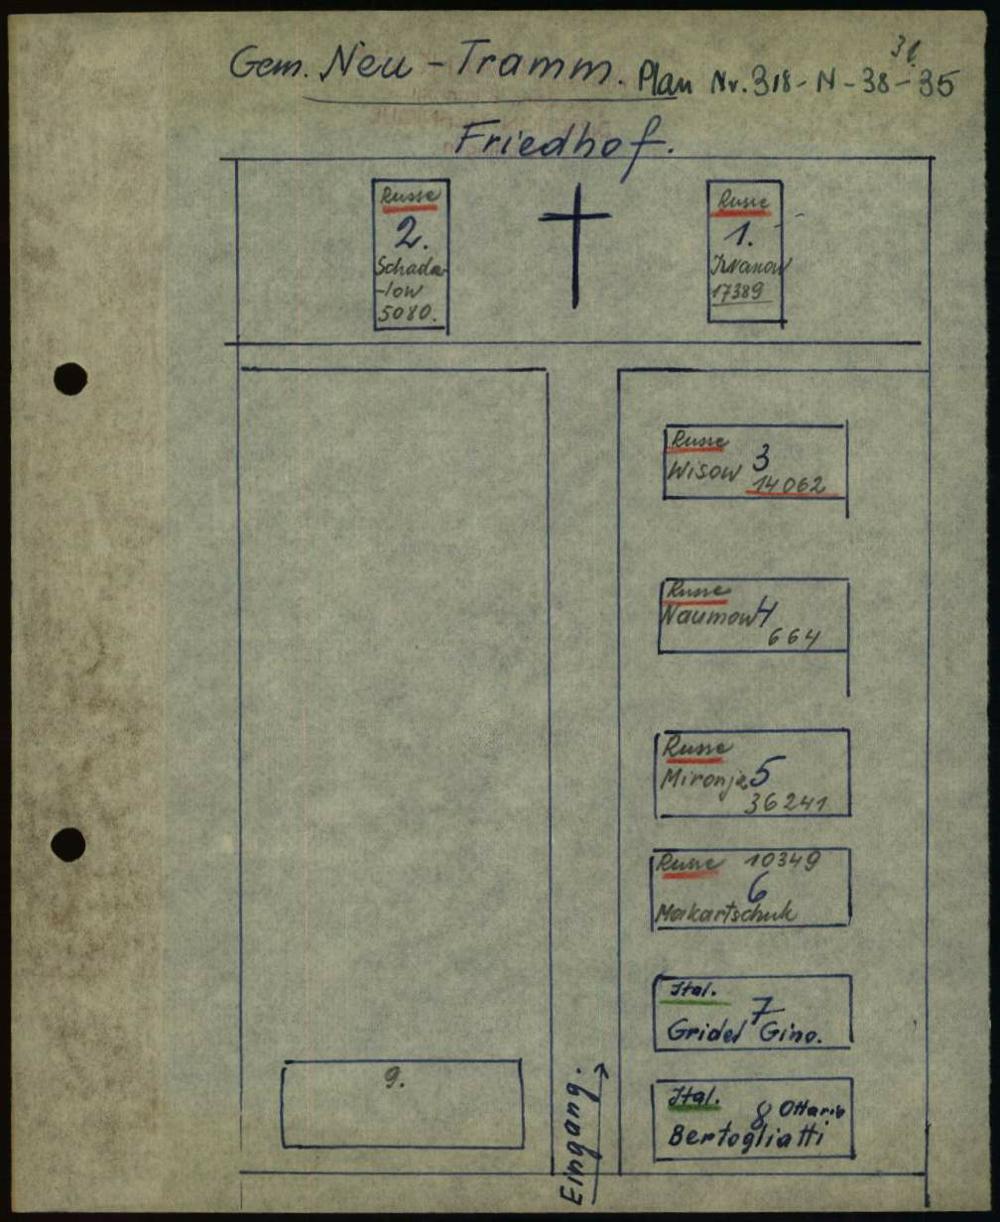 31.
Gem. Neu-Tramm. Plan Nr. 318-N-38-35
Friedhof.
Russe
2.
Schada
-low
5080.
Russe
1.
Iwanow
17389
Russe
Wisow 3
14062
Russe
Naumow 4
664
Russe
Mironja 5
36241
Russe 10349
6
Makartschuk
Ital.
7
Gridel Gino.
Ital.
8 Ottario
Bertogliatti
9.
Eingang.